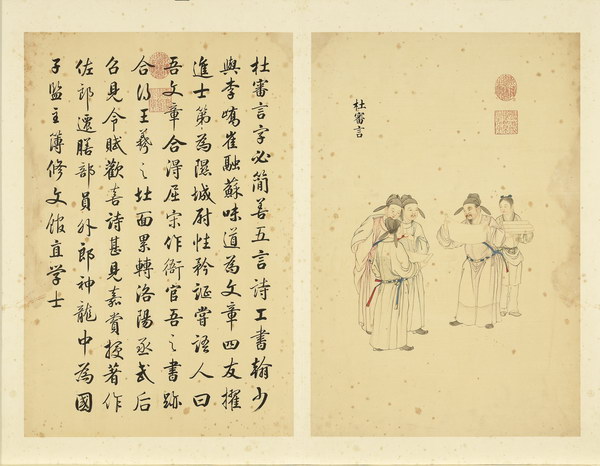 杜審言
杜審言字必簡善五言詩工書翰少
與李嶠崔融蘇味道為文章四友擢
進士第為隰城尉性矜誕嘗語人曰
吾文章合得屈宋作衙官吾之書跡
合得王羲之北面累轉洛陽丞武后
召見令賦歡喜詩甚見嘉賞授著作
佐郎遷膳部員外郎神龍中為國
子監主簿修文館直学士